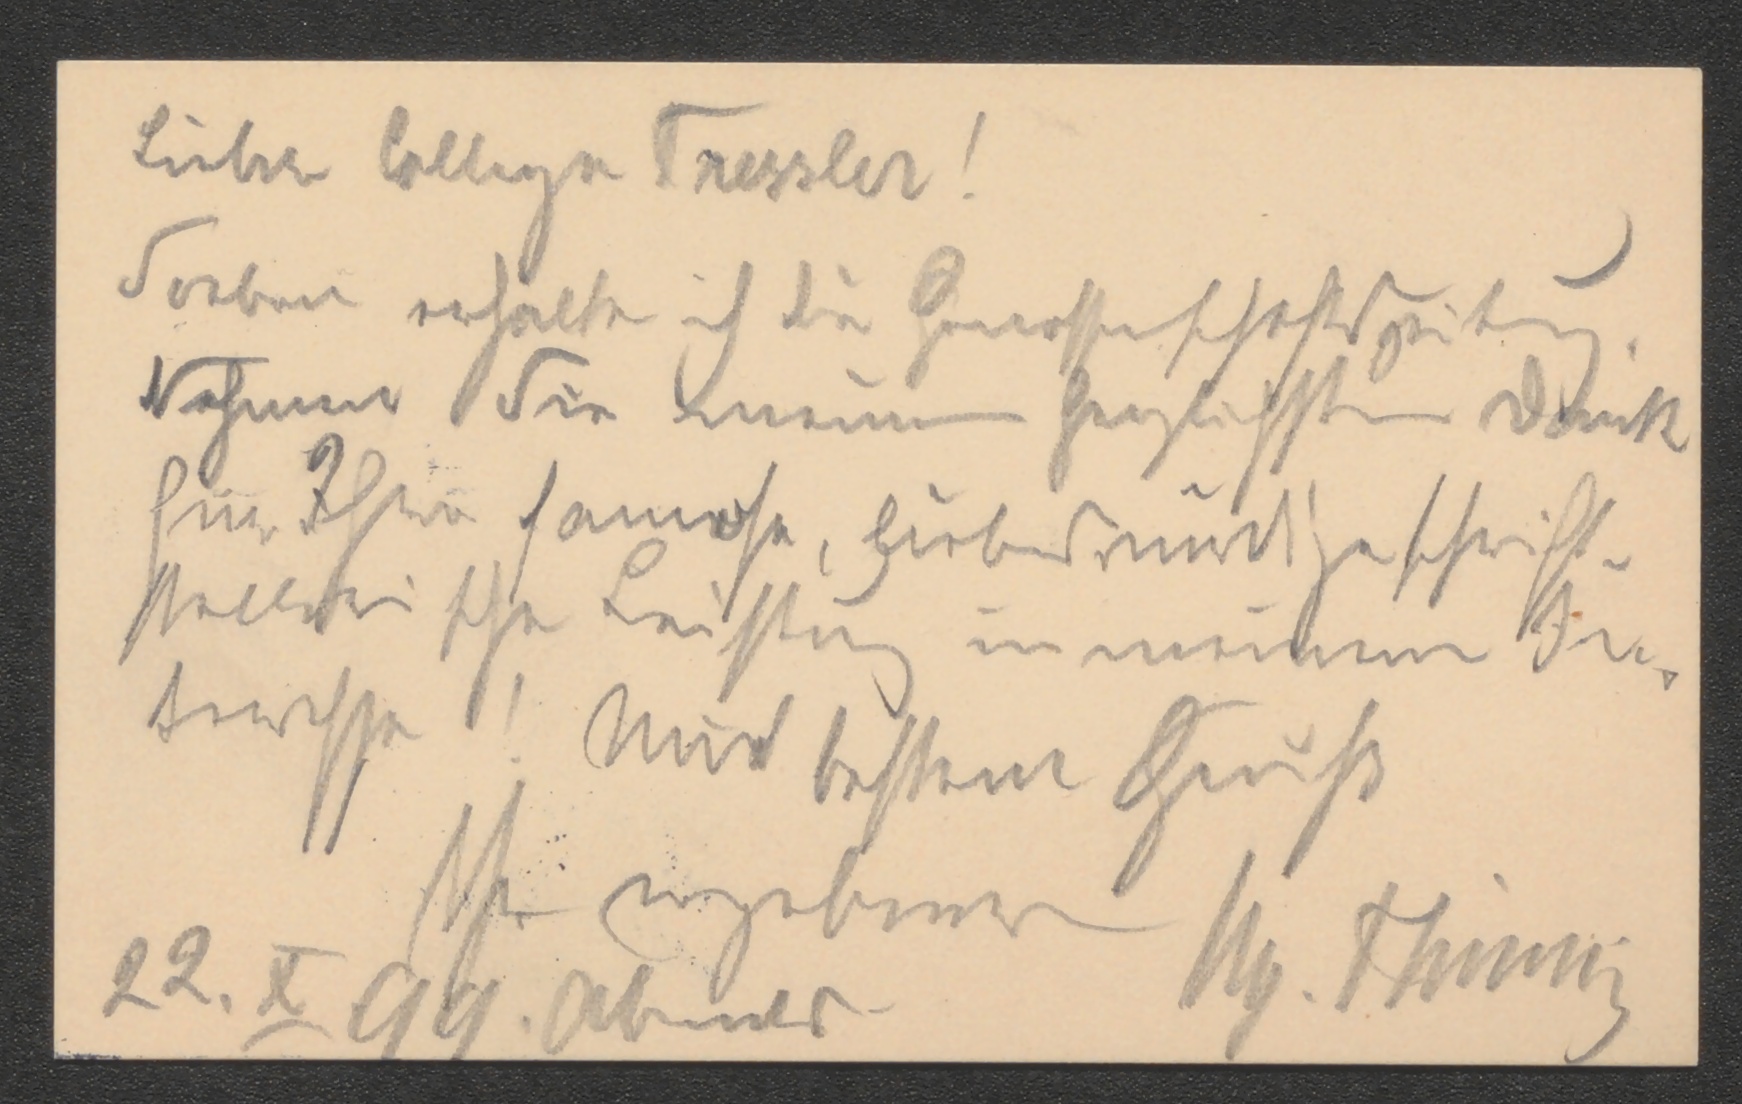 Lieber College Tressler!
Soeben erhalte ich die Genossenschaftszeitung.
Nehmen Sie meinen herzlichsten Dank
für Ihre famose, liebenswürdige schrift-
stellerische Leistung in meinem In-
teresse! Mit bestem Gruß
Ihr ergebener
Hg. Thimig
22. X 99. Abends